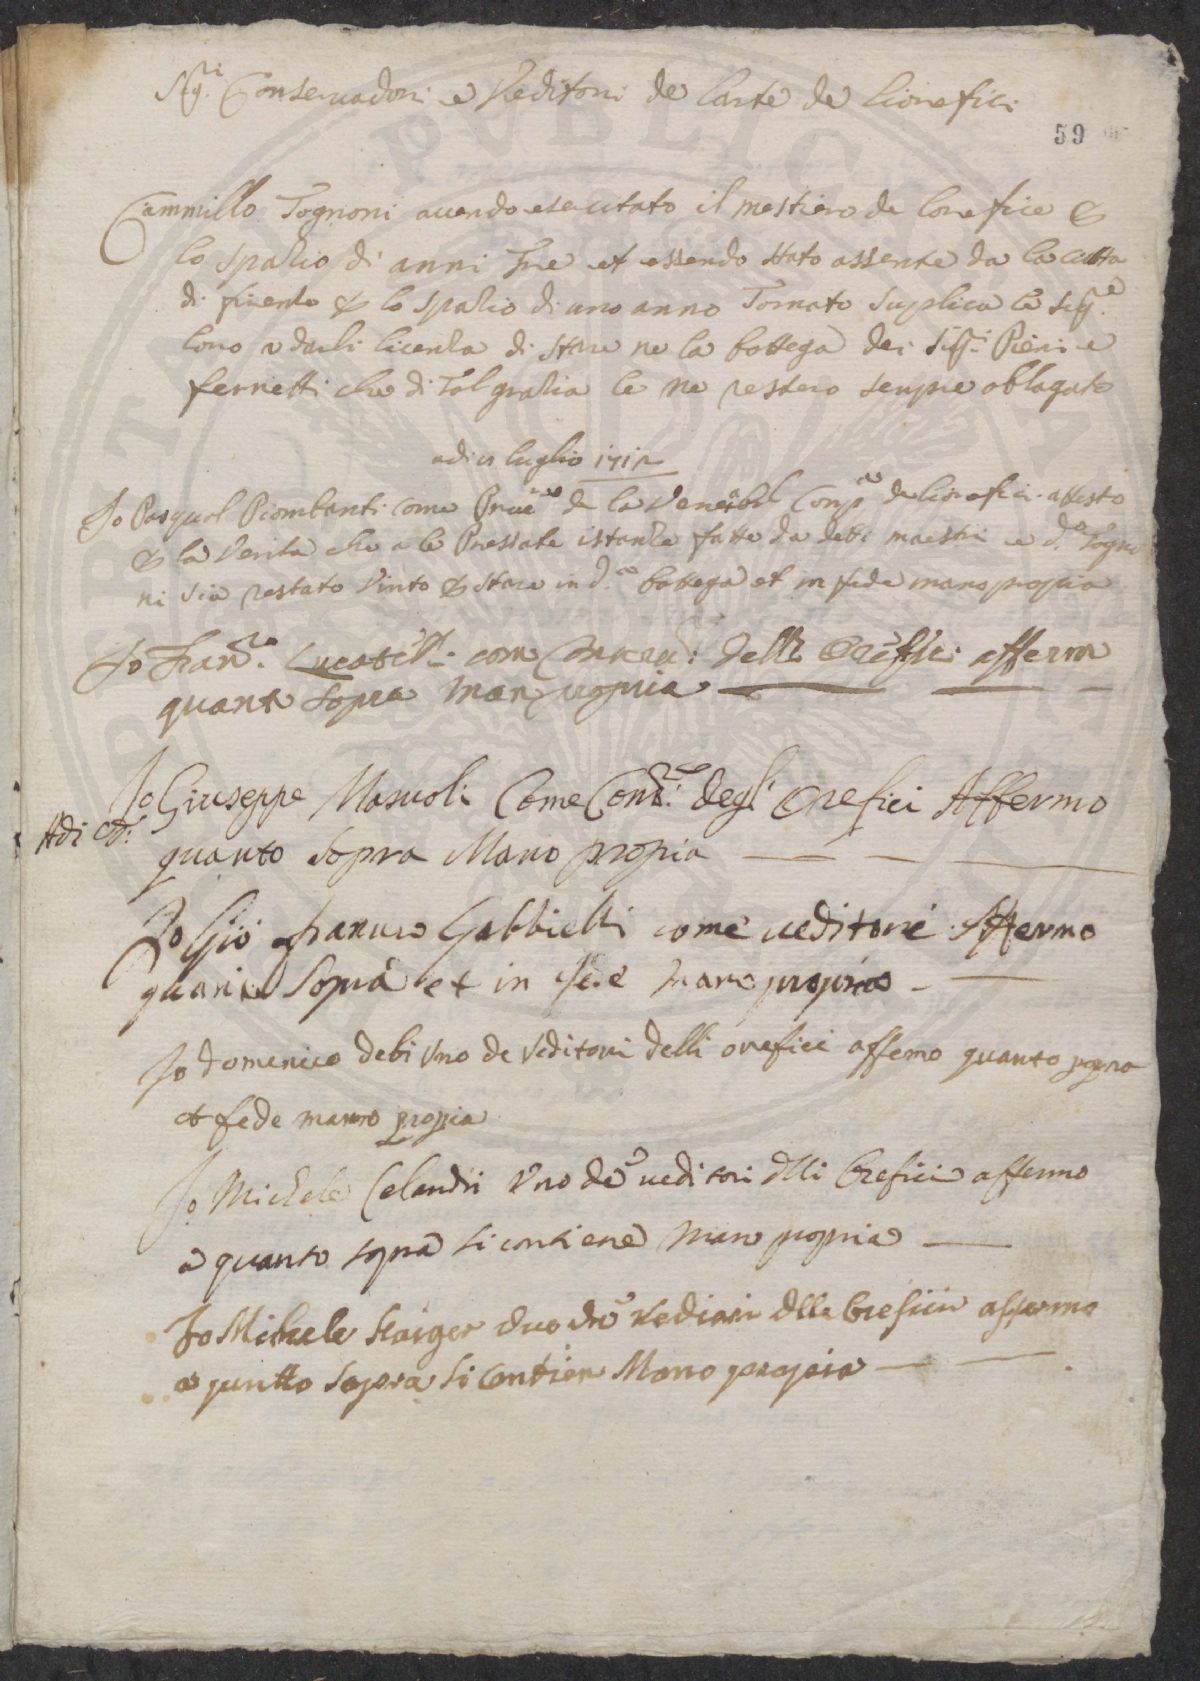 Sig.ri Conservadori e Veditori de larte de lionefici
59
Cammillo Tognoni avendo esercitato il mestiero de lorefice &
lo spatio di anni Tre et essendo stato assente da la citta
di firenle & lo spatio di uno anno Tornato suplica le Sig.re
loro a darli licenla di stare ne la bottega dei Sig.ri Pieri e
ferretti che di Tal gratia le ne restero senpre oblagato
adi luglio 171
Io Pasqual Piombanti come de la Venerabil Conp.a de lionefici attesto
& la Verita che a le Pressate istanze fatte da detti maestri e d.o Togno
ni sia restato Vinto & stare in d.a bottega et in fede mano propria
Io Fran.co Lucatelli come delli Orefici affermo
quanto sopra mano propria
Io Giuseppe Masuoli Come Cons.re degl' Orefici Affermo
Adi d.o
quanto sopra Mano propia
Io Gio franco Gabbielli come veditore Affermo
quanto Sopra et in fede mano propria
Io domenico debi Uno de Veditori delli orefici affemo quanto sopra
et fede manno propia
Io Michele Celandri Uno de veditori dlli Orefici affermo
a quanto sopra si contiene mano propria
Io Michele uno de Veditori dlle Orefici affermo
a quntto sopra si contien Mano propria